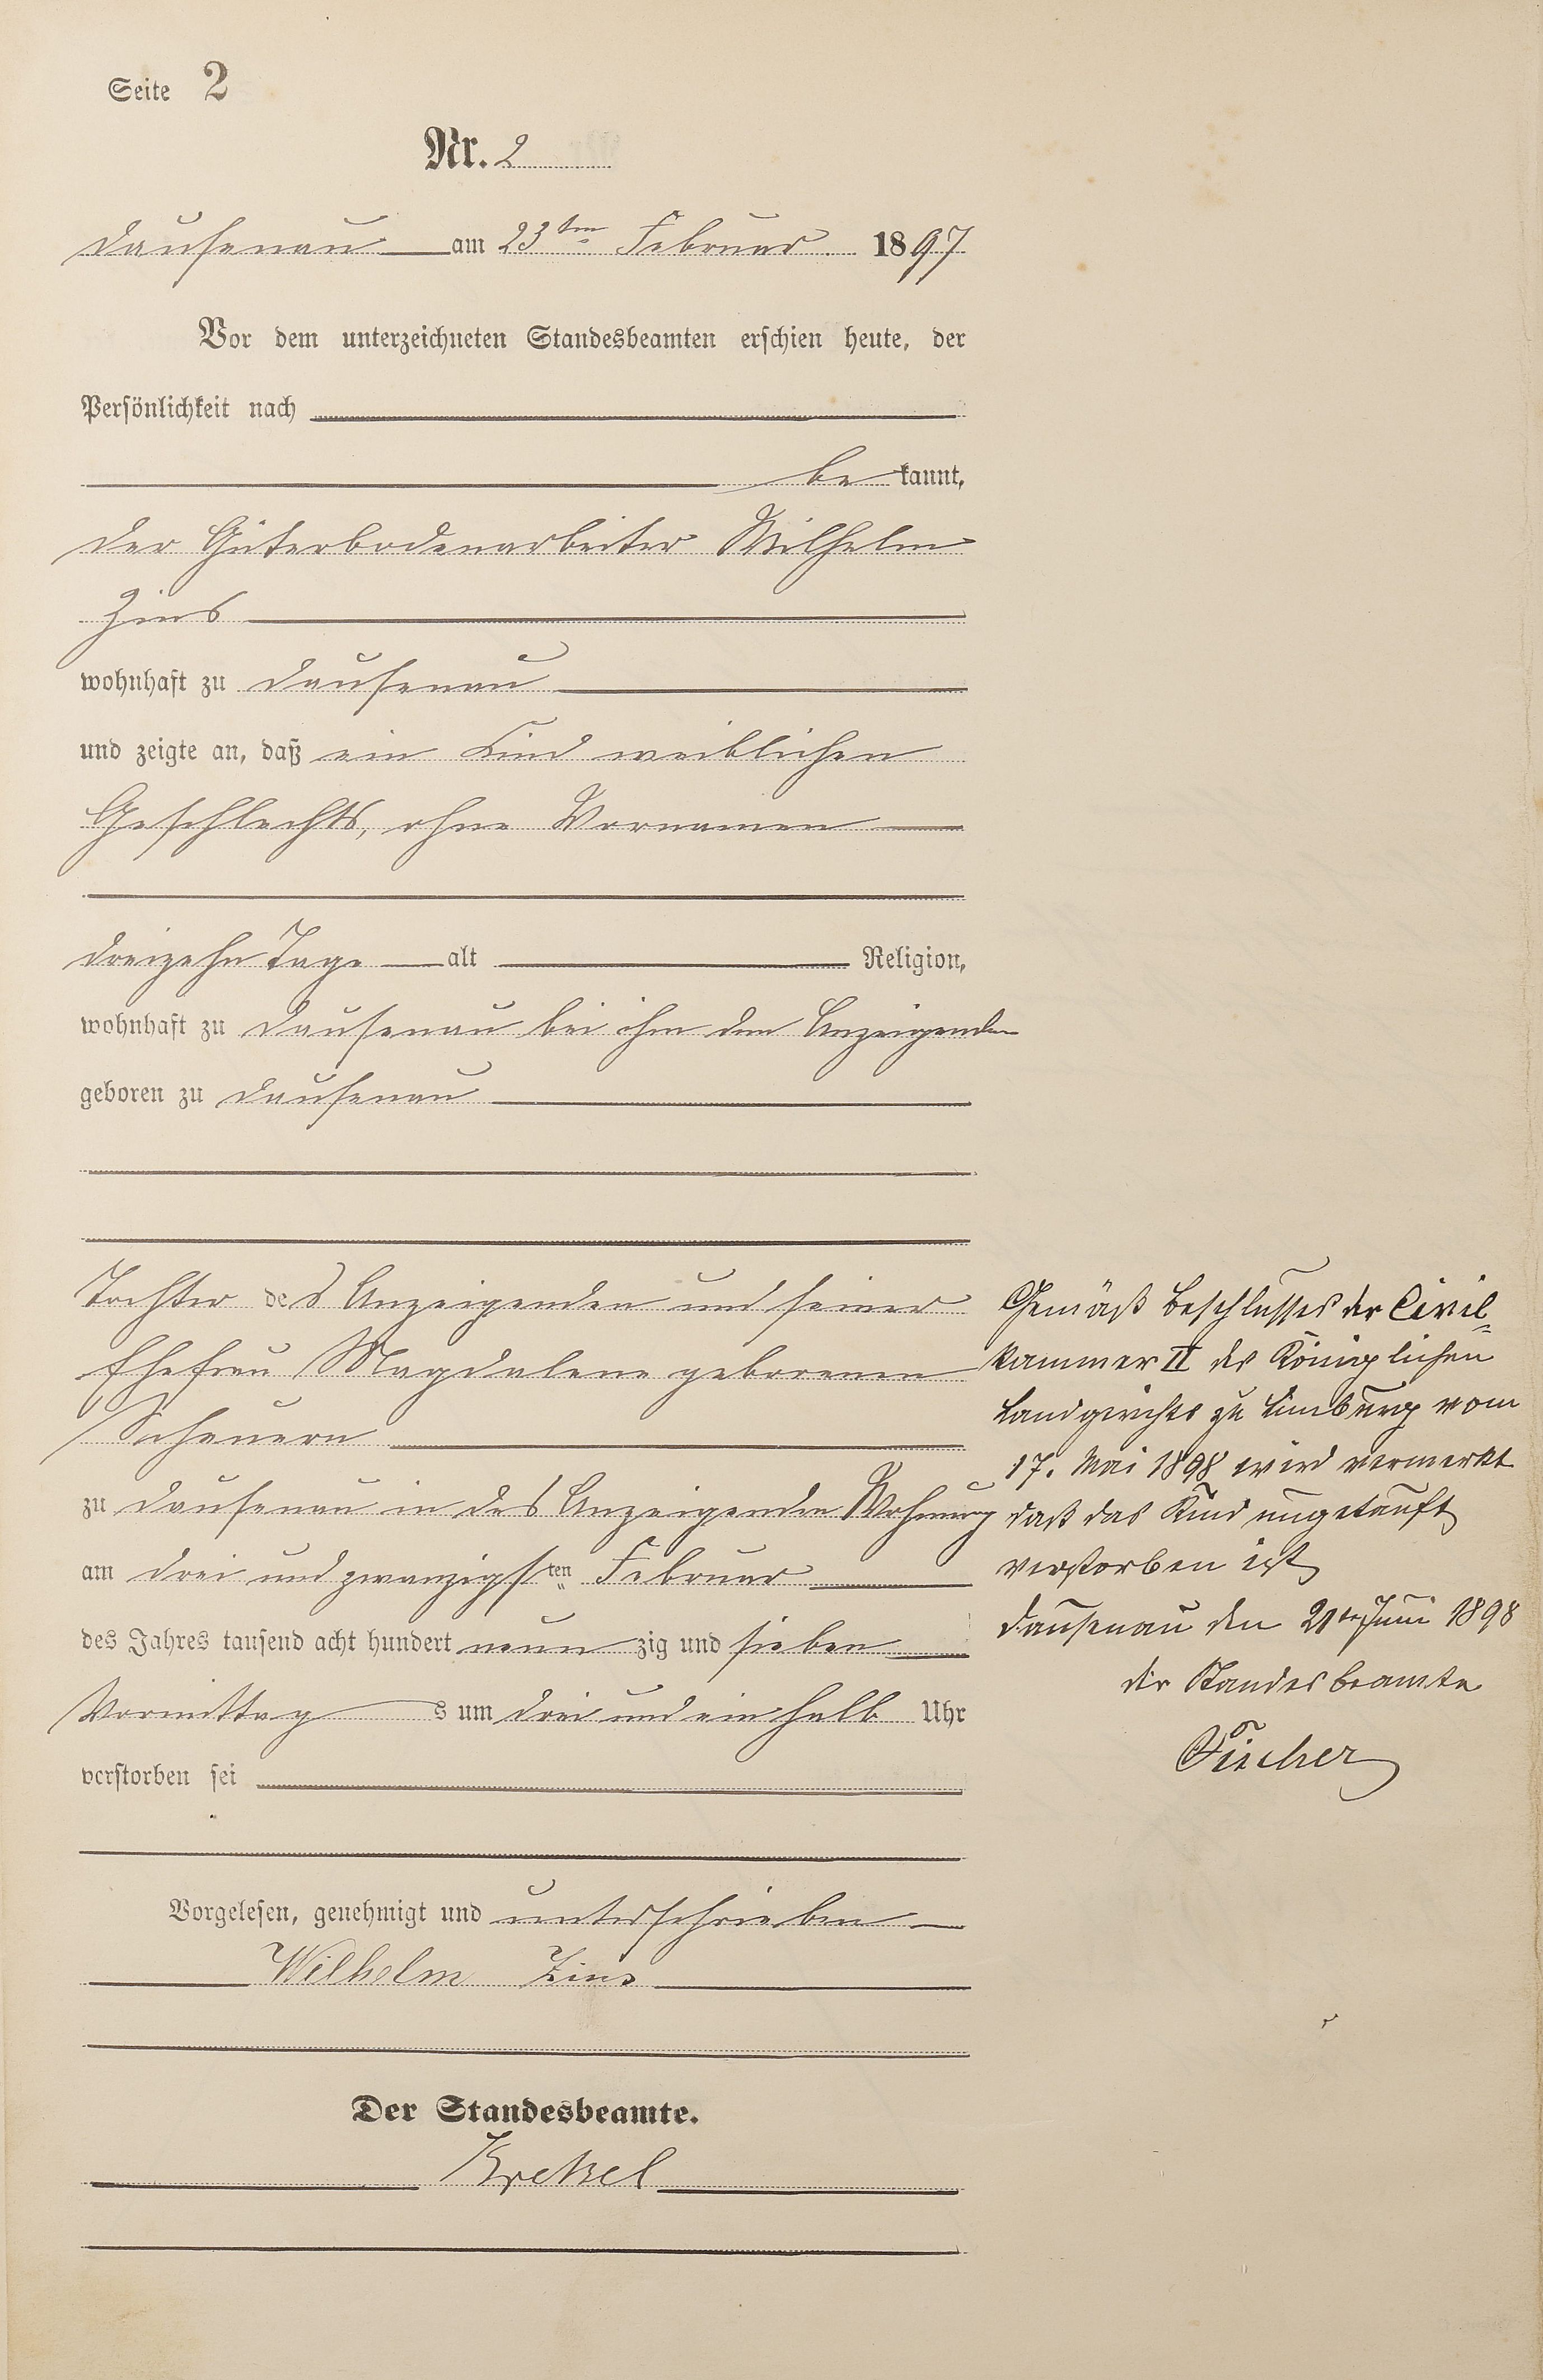 Seite 2
Nr. 2
Dausenau am 23ten Februar 1897
Vor dem unterzeichneten Standesbeamten erschien heute, der
Persönlichkeit nach
be kannt,
der Güterbodenarbeiter Wilhelm
Zins
wohnhaft zu Dausenau
und zeigte an, daß ein Kind weiblichen
Geschlechts, ohne Vornamen
dreizehn Tage alt Religion,
wohnhaft zu Dausenau bei ihm dem Anzeigenden
geboren zu Dausenau
Tochter des Anzeigenden und seiner
Ehefrau Magdalene geborenen
Scheuern
zu Dausenau in des Anzeigenden Wohnung
am drei und zwanzigsten Februar
des Jahres tausend acht hundert neun zig und sieben
Vormittag s um drei und ein halb Uhr
verstorben sei
Vorgelesen, genehmigt und unterschrieben
Wilhelm Zins
Der Standesbeamte.
Krekel
Gemäß Beschlusses der Civil-
kammer II des Königlichen
Landgerichts zu Limburg vom
17. Mai 1898 wird vermerkt
daß das Kind ungetauft
verstorben ist
Dausenau den 21ten Juni 1898
der Standesbeamte
Fischer